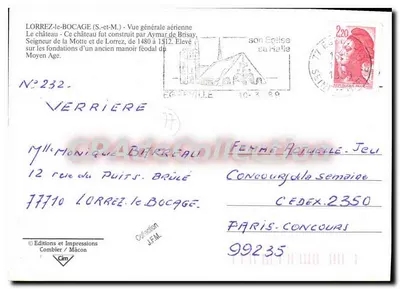 LORREZ-le-BOCAGE (S.-et-M.) - Vue générale aérienne
Le château - Ce château fut construit par Aymar de Brisay,
Seigneur de la Motte et de Lorrez, de 1480 à 1512. Elevé
sur les fondations d'un ancien manoir féodal du
Moyen Age.
son Eglise
sa Halle
10-3
2,20
N° 232.
VERRIERE
Mlle MONIQUE BARREAU
12 RUE DU PUITS-BRÛLÉ
77710 LORREZ-LE-BOCAGE.
FEMME ACTUELLE-JEU
CONCOURS de la SEMAINE
CEDEX.2350
PARIS-CONCOURS
99235
Collection
J.F.M.
© Editions et Impressions
Combier / Mâcon
Cim